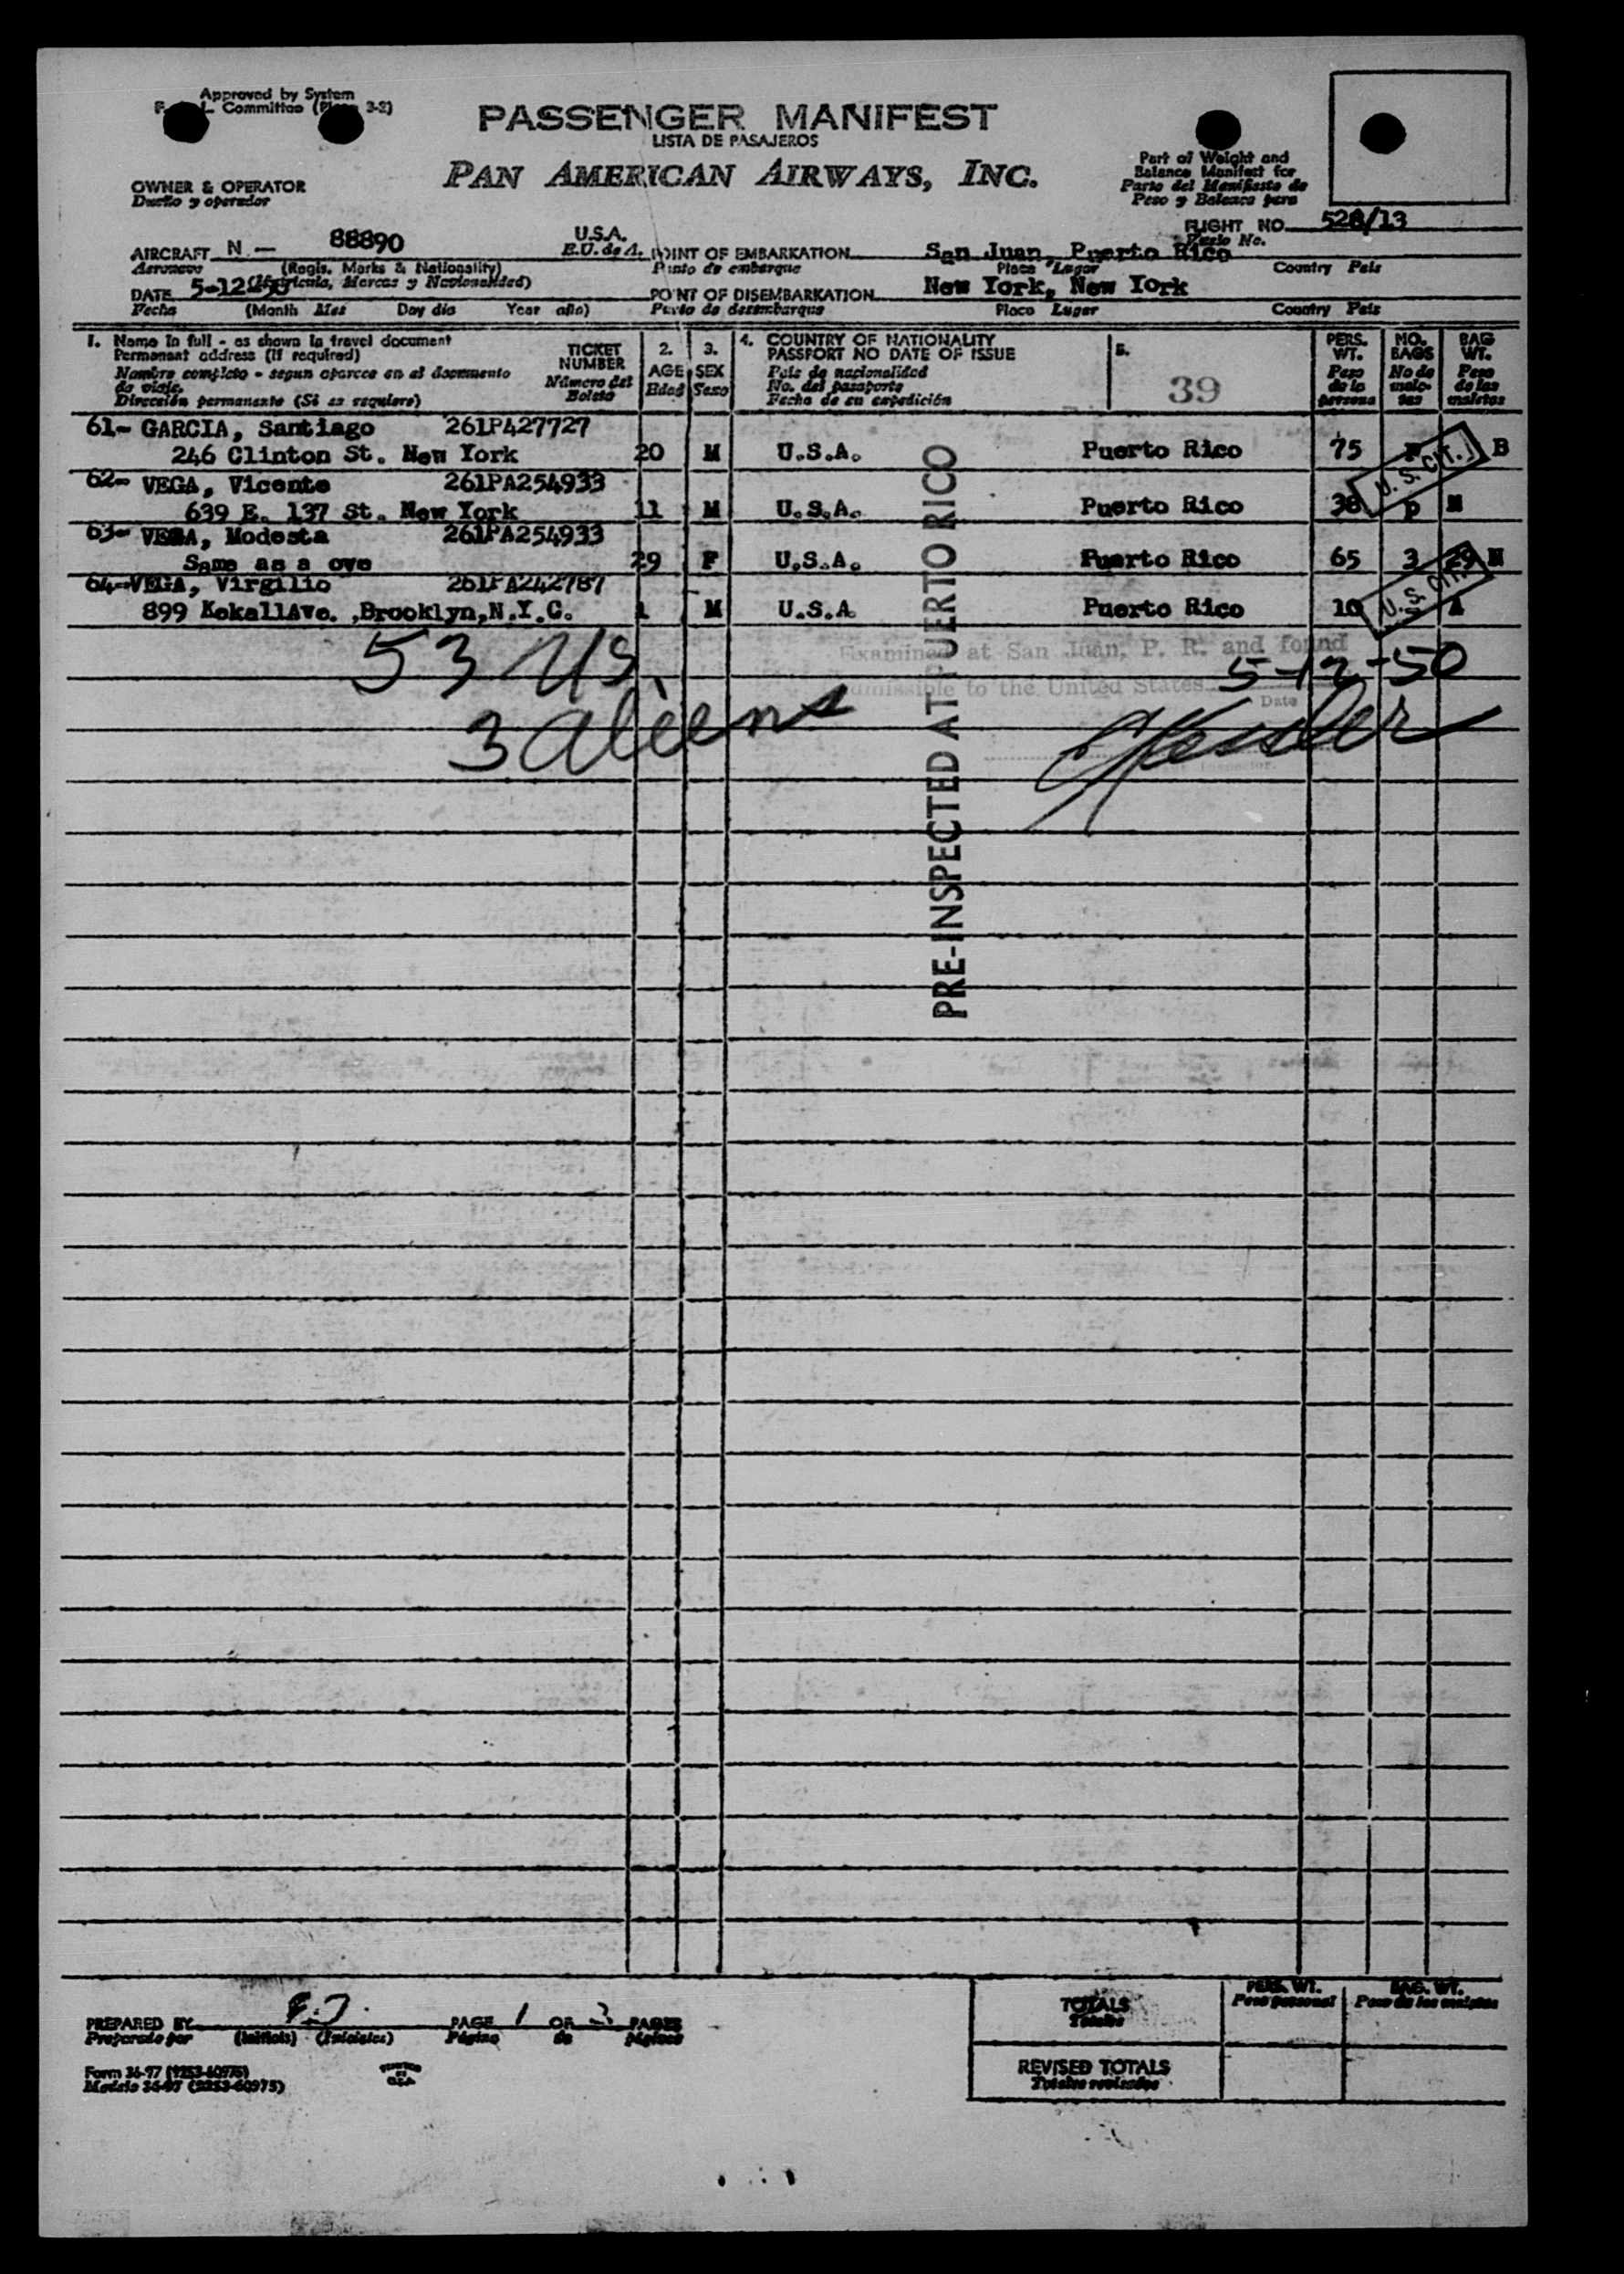 Approved by System
Committee 3-2)
PASSENGER MANIFEST
LISTA DE PASAJEROS
PAN AMERICAN AIRWAYS, INC.
Part of Weight and
Balance Manifest for
Parte del Manifiesto de
Peso y Balance para
OWNER & OPERATOR
Dueño y operador
FLIGHT NO. 528/13
Vuelo No.
AIRCRAFT N — 88890 U.S.A.
E.U. de A.
Aeronave (Regis. Marks & Nationality)
(Matricula, Marcas y Nacionalidad)
POINT OF EMBARKATION San Juan, Puerto Rico
Punto de embarque Place Lugar Country Pais
DATE 5-12-50
Fecha (Month Mes Day dia Year año)
POINT OF DISEMBARKATION New York, New York
Punto de desembarque Place Lugar Country Pais
1. Name in full - as shown in travel document
Permanent address (if required)
Nombre completo - segun aparece en el documento
de viaje.
Dirección permanente (Si es requiere)
TICKET
NUMBER
Número del
Boleto
2.
AGE
Edad
3.
SEX
Sexo
4. COUNTRY OF NATIONALITY
PASSPORT NO DATE OF ISSUE
Pais de nacionalidad
No. del pasaporte
Fecha de su expedición
5.
39
PERS.
WT.
Peso
de la
persona
NO.
BAGS
No de
male-
tas
BAG
WT.
Peso
de las
maletas
61- GARCIA, Santiago 261P427727
246 Clinton St. New York 20 M U.S.A. Puerto Rico 75 B
62- VEGA, Vicente 261PA254933
639 E. 137 St. New York 11 M U.S.A. Puerto Rico 38 P M
63- VEGA, Modesta 261PA254933
Same as a ove 29 F U.S.A. Puerto Rico 65 3 29 M
64-VEGA, Virgilio 261PA242787
899 KekallAve. ,Brooklyn,N.Y.C. 1 M U.S.A Puerto Rico 10 A
U. S. CIT.
U. S. CIT.
53 US.
3 aliens
Examined at San Juan, P. R. and found
admissible to the United States 5-12-50
Date
Inspector.
PRE-INSPECTED AT PUERTO RICO
PREPARED BY E.J. PAGE 1 OF 3 PAGES
Preparado por (Initials) (Iniciales) Página de páginas
Form 36-97 (9253-60975)
Modelo 36-97 (9253-60975)
PRINTED
IN
U.S.A.
PERS. WT.
Peso personal
BAG. WT.
Peso de las maletas
TOTALS
Totales
REVISED TOTALS
Totales revisados